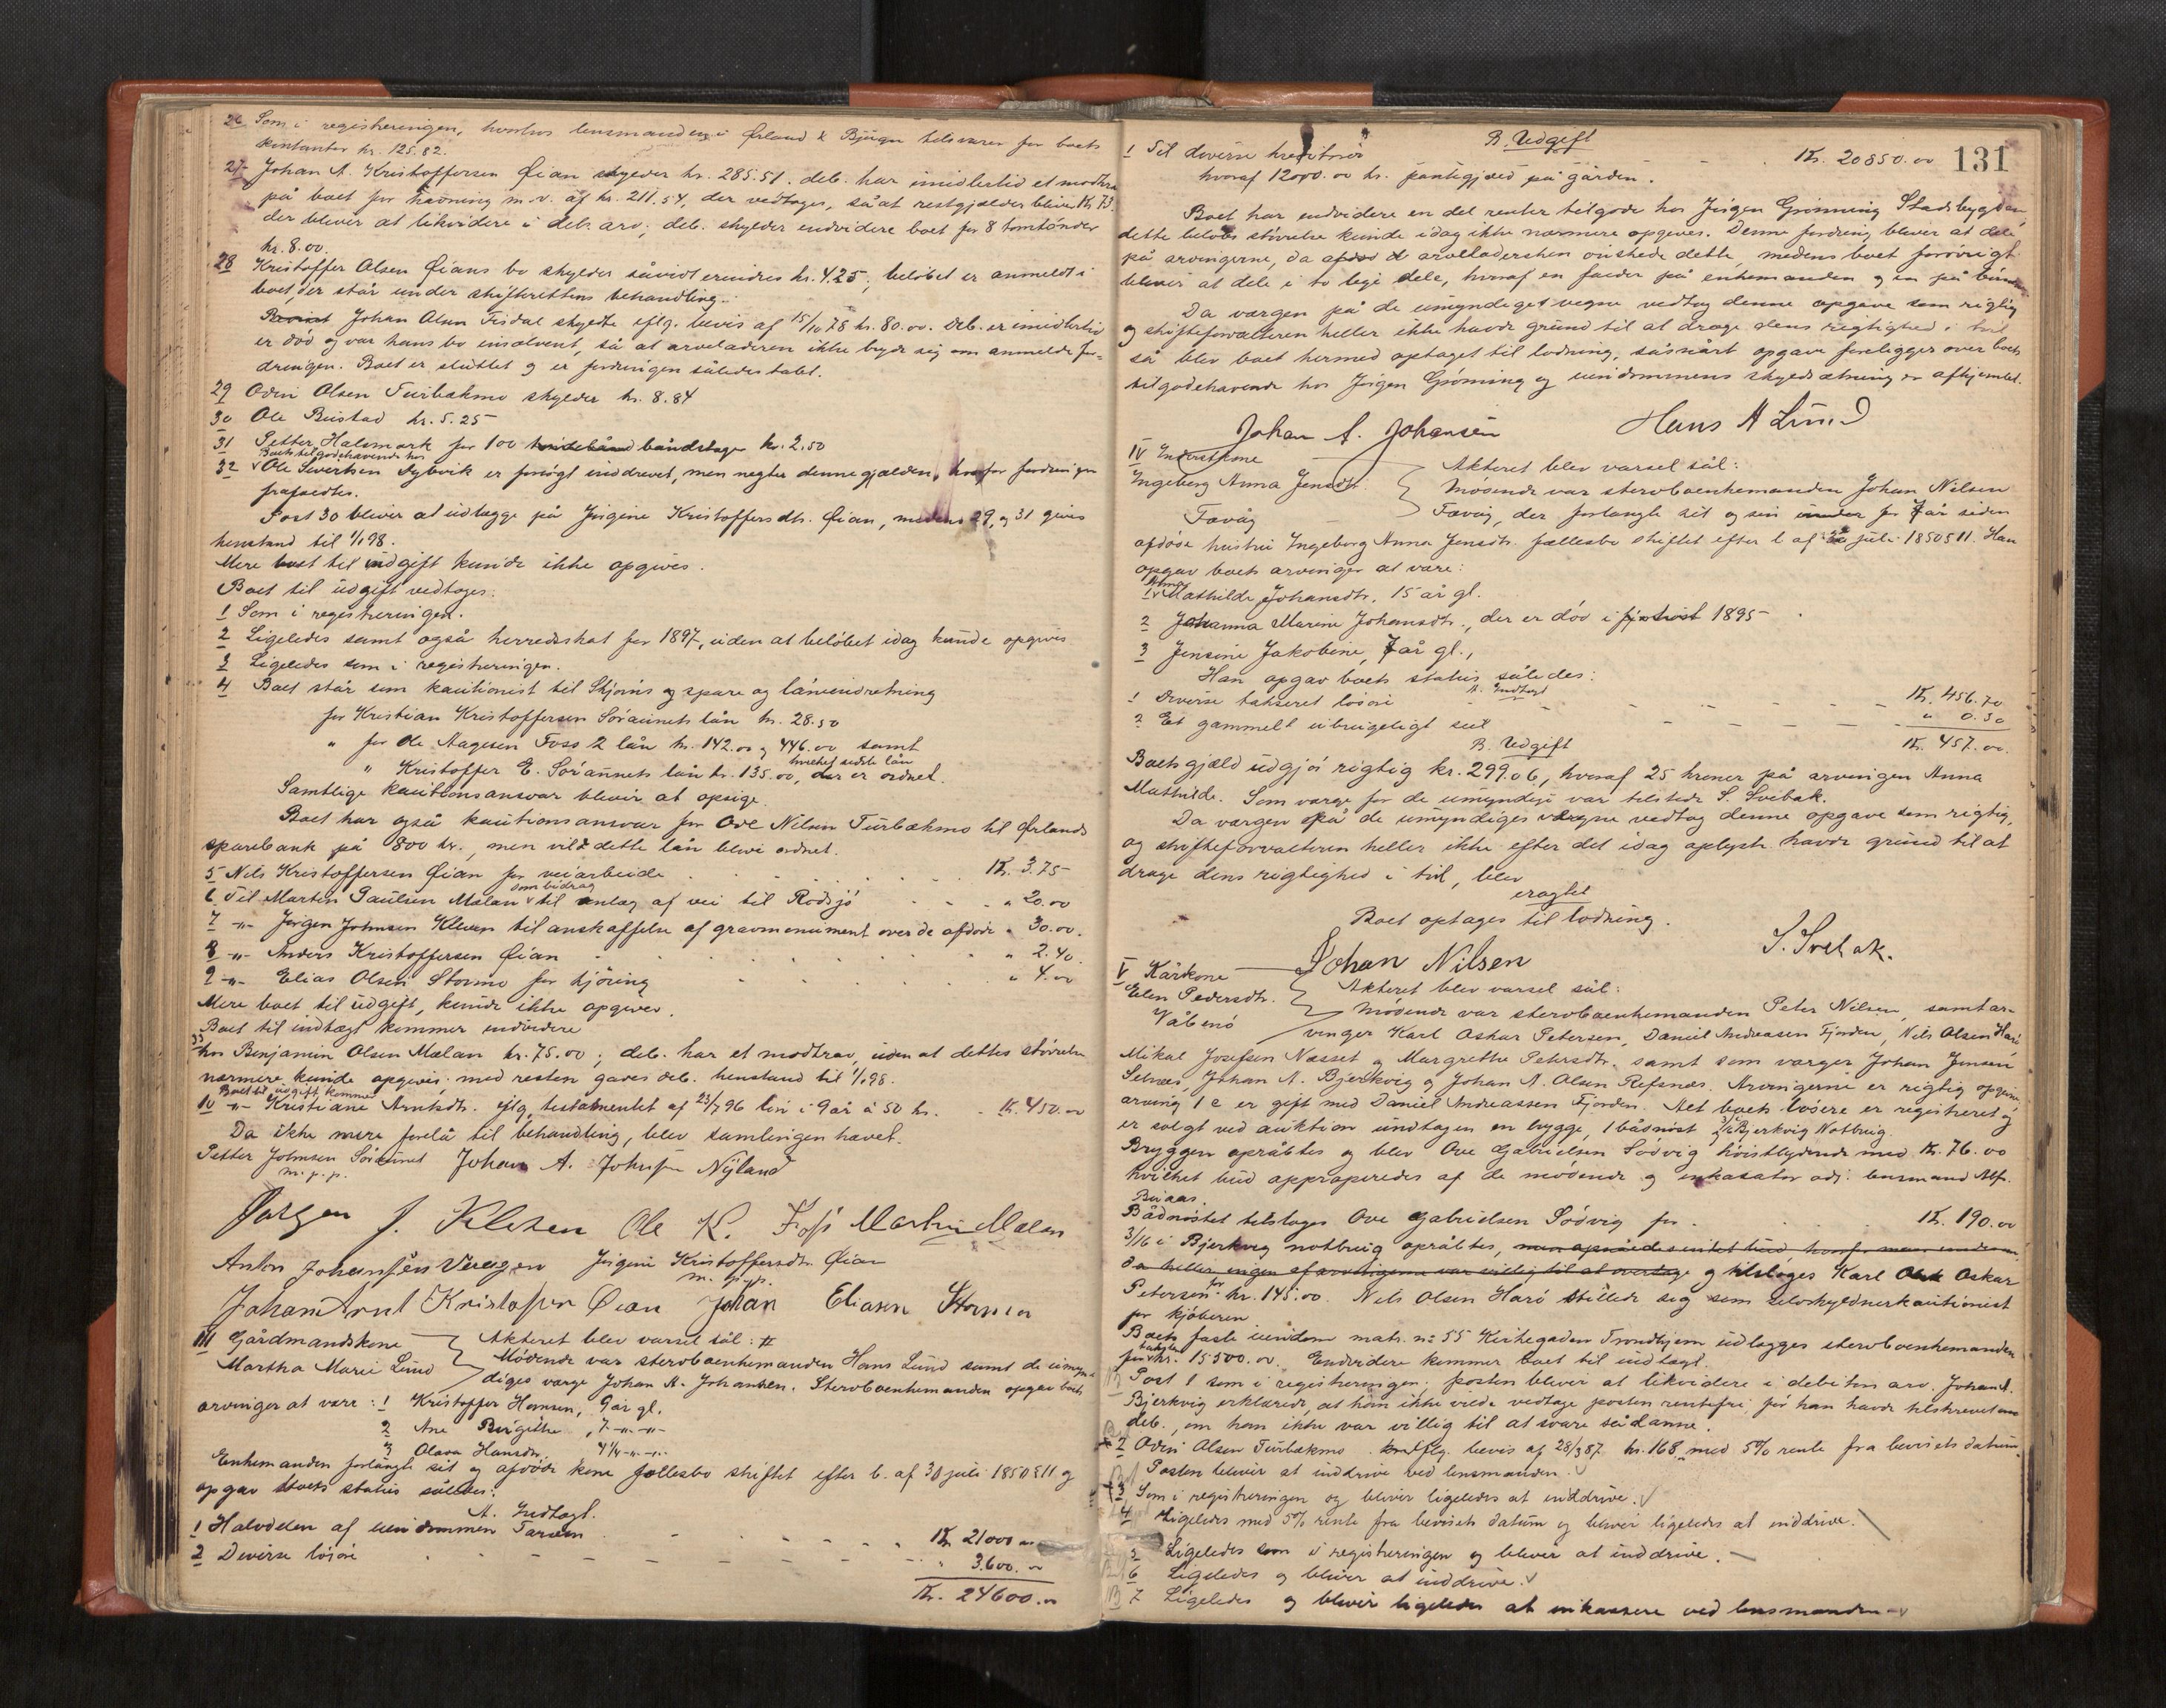 26 Som i registreringen, hvorhos lensmanden i Ørland & Bjugn tilsvarer for boets
kontanter kr. 125.82.
27 Johan A. Kristoffersen Øian skylder kr. 285.51. deb. har imidlertid et modkrav
på boet for havning m.v. af kr. 211.54, der vedtages, så at restgjælden bliver kr. 73.
der bliver at likvidere i deb. arv; deb. skylder endvidere boet for 8 tomtønder
kr. 8.00
28 Kristoffer Olsen Øians bo skylder såvidt erindres kr. 425; beløbet er anmeldt i
boet, der står under skifterettens behandling.
Johan Olsen Fisdal skyldte iflg. bevis af 15/10 78 kr. 80.00. Deb. er imidlertid
er død og var hans bo insolvent, så at arveladeren ikke brød sig om anmelde for-
dringen. Boet er sluttet og er fordringen således tabt.
29 Odin Olsen Turbækmo skylder kr. 8.84
30 Ole Bustad kr. 5.25
31 Petter Halsmark for 100 båndstager kr. 2.50
Boets tilgodehavende hos
32 Ole Sivertsen Dybvik er forsøgt inddrevet, men negter denne gjælden, hvorfor fordringen
frafaldtes.
Post 30 bliver at udlægge på Jørgine Kristoffersdtr. Øian, medens 29 og 31 gives
henstand til 1/1 98.
Mere boet til indgift kunde ikke opgives.
Boet til udgift vedtages:
1 Som i registreringen.
2 Ligeledes samt også herredsskat for 1897, uden at beløbet idag kunde opgives
3 Ligeledes som i registreringen.
4 Boet står som kautionist til Skjørns og spare og låneindretning
for Kristian Kristoffersen Søraunets lån kr. 28.50
" for Ole Aagesen Foss 2 lån kr. 142.00 og 446.00 samt
hvilket sidste lån
" Kristoffer E. Søraunets lån kr. 135.00, der er ordnet.
Samtlige kautionsansvar bliver at opsige.
Boet har også kautionsansvar for Ove Nilsen Turbækmo til Ørlands
sparebank på 800 kr., men vil dette lån blive ordnet.
5 Nils Kristoffersen Øian for veiarbeide Kr. 3.75
som bidrag
6 Til Martin Paulsen Mælan til anlæg af vei til Rødsjø " 20.00
7 -"- Jørgen Johnsen Kleven til anskaffelse af gravmonument over de afdøde " 30.00.
8 -"- Anders Kristoffersen Øian " 2.40.
9 -"- Elias Olsen Stormo for kjøring " 4.00
Mere boet til udgift, kunde ikke opgives.
Boet til indtægt kommer endvidere
33 hos Benjamin Olsen Mælan kr. 75.00; deb. har et modkrav, uden at dettes størrelse
nærmere kunde opgives; med resten gaves deb. henstand til 1/1 98.
Boet til udgift kommer
10 -"- Kristiane Arntsdtr. iflg. testamentet af 23/7 96 løn i 9 år à 50 kr. Kr. 450.00
Da ikke mere forelå til behandling, blev samlingen hævet.
Petter Johnsen Søraunet Johan A. Johnsen Nyland
m. p. p.
Jørgen J. Kleven Ole K. Foss Martin Mælan
Anton Johansen Jørgine Kristoffersdtr. Øian
m. p. p.
Johan Arnt Kristofer Øian Johan Eliasen Stormo
III Gårdmandskone Aktoret blev varsel sål: #
Martha Marie Lund Mødende var stervboenkemanden Hans Lund samt de umyn-
diges værge Johan A. Johansen. Stervboenkemanden opgav boets
arvinger at være: 1 Kristoffer Hansen, 9 år gl.
2 Ane Birgitte, 7 -"- -"-
3 Olava Hansdtr. 4 1/4 -"- -"-
Enkemanden forlangte sit og afdøde kone fællesbo skiftet efter l. af 30 juli 1850 § 11 og
opgav boets status således:
A. Indtægt.
1 Halvdelen af eiendommen Tarven Kr. 21000.00
2 Diverse løsøre " 3600.00
Kr. 24600.00
131
B. Udgift
1 Til diverse kreditorer Kr. 20850.00
hvoraf 12000.00 kr. pantegjæld på gården.
Boet har endvidere en del renter tilgode hos Jørgen Grønning Stadsbygden
dette beløbs størrelse kunde idag ikke nærmere opgives. Denne fordring bliver at dele
på arvingerne, da arveladersken ønskede dette, medens boet forøvrigt
bliver at dele i to lige dele, hvoraf en falder på enkemanden og en på børnene
Da værgen på de umyndiges vegne vedtog denne opgave som rigtig
og skifteforvalteren heller ikke havde grund til at drage dens rigtighed i tvil
så blev boet hermed optaget til lodning, såsnart opgave foreligger over boets
tilgodehavende hos Jørgen Grønning og eiendommens skyldsætning er afhjemlet.
Johan A. Johansen Hans A Lund
IV Inderstkone Aktoret blev varsel sål:
Ingeborg Anna Jensdtr. Mødende var stervboenkemanden Johan Nilsen
Fævåg Fævåg, der forlangte sit og sin for 7 år siden
afdøde hustru Ingeborg Anna Jensdtr. fællesbo skiftet efter l. af 30 juli 1850 § 11. Han
opgav boets arvinger at være:
Anna
1 Mathilde Johansdtr. 15 år gl.
2 Johanna Marie Johansdtr., der er død i høst 1895
3 Jensine Jakobine, 7 år gl.,
Han opgav boets status således:
A. Indtægt
1 Diverse takseret løsøre Kr. 456.70
2 Et gammelt ubrugeligt seil " 0.30
B. Udgift Kr. 457.00.
Boets gjæld udgjør rigtig kr. 299.06, hvoraf 25 kroner på arvingen Anna
Mathilde. Som værge for de umyndige var tilstede S. Svebak.
Da værgen på de umyndiges vegne vedtog denne opgave som rigtig,
og skifteforvalteren heller ikke efter det idag oplyste havde grund til at
drage dens rigtighed i tvil, blev
eragtet
Boet optages til lodning.
Johan Nilsen S. Svebak.
V Kårkone Aktoret blev varsel sål:
Elen Pedersdtr. Mødende var stervboenkemanden Peter Nilsen, samt ar-
Våbenø vinger Karl Oskar Petersen, Daniel Andreasen Fjorden, Nils Olsen Harø
Mikal Josefsen Næsset og Margrethe Petersdtr. samt som værger Johan Jensen
Selnæs, Johan A. Bjerkvig og Johan A. Olsen Refsnæs. Arvingerne er rigtig opgivne,
arving 1 c er gift med Daniel Andreassen Fjorden. Alt boets løsøre er registreret og
er solgt ved auktion undtagen en brygge, 1 bådnøst og 3/16 Bjerkvig Notbrug.
Bryggen opråbtes og blev Ove Gabrielsen Sødvig høistbydende med kr. 76.00
hvilket bud approperedes af de mødende og inkasator adj. lensmand Alf.
Buaas.
Bådnøstet tilsloges Ove Gabrielsen Sødvig for Kr. 190.00
3/16 i Bjerkvig notbrug opråbtes,
da heller ingen af arvingerne var villig til at overtage og tilsloges Karl Oskar
Petersen for kr. 145.00. Nils Olsen Harø stillede sig som selvskyldnerkautionist
for kjøberen
Boets faste eiendom matr. n: 55 Kirkegaden Trondhjem udlægges stervboenkemanden
for kr. 15500.00 Endvidere kommer boet til indtægt.
Post 1 som i registreringen; posten bliver at likvidere i debitors arv. Johan A.
Bjerkvig erklærede, at han ikke vilde vedtage posten rentefri, før han havde tilskrevet
deb., om han ikke var villig til at svare sådanne.
2 Odin Olsen Turbækmo iflg. bevis af 28/3 87 kr. 168 med 5% rente fra bevisets datum.
Posten bliver at inddrive ved lensmanden.
3 Som i registreringen og bliver ligeledes at inddrive.
4 Ligeledes med 5% rente fra bevisets datum og bliver ligeledes at inddrive.
5 Ligeledes som i registreringen og bliver at inddrive.
6 Ligeledes og bliver at inddrive.
7 Ligeledes og bliver ligeledes at inkassere ved lensmanden